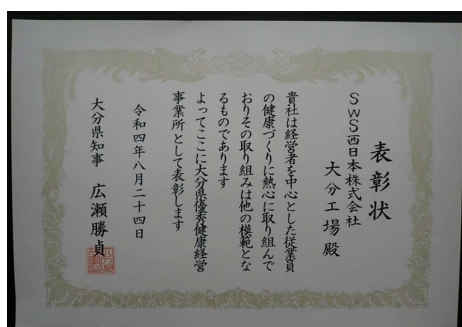 表彰状
SWS西日本株式会社
大分工場殿
貴社は経営者を中心とした従業員
の健康づくりに熱心に取り組んで
おりその取り組みは他の模範とな
るものであります
よってここに大分県優秀健康経営
事業所として表彰します
令和四年八月二十四日
大分県知事 広瀬勝貞